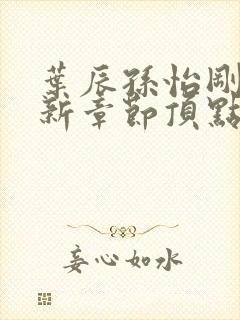 葉辰孫怡剛
新章節頂點
妄心如水